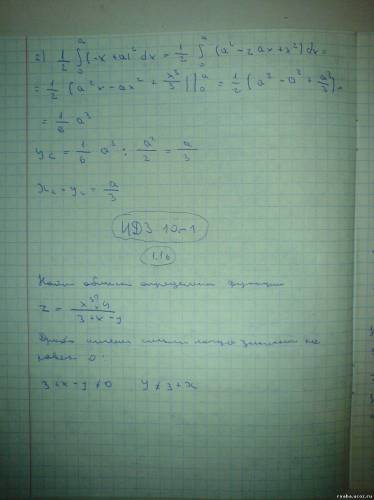 2) 1/2 ∫₀ᵃ (-x + a)² dx = 1/2 ∫₀ᵃ (a² - 2ax + x²) dx =
= 1/2 (a²x - ax² + x³/3)|₀ᵃ = 1/2 (a³ - a³ + a³/3) =
= 1/6 a³
y_c = 1/6 a³ : a²/2 = a/3
x_c = y_c = a/3
ИДЗ 10-1
1.16
Найти область определения функции
z = / 3 + x - y
Дробь имеет смысл когда знаменатель не
равен 0:
3 + x - y ≠ 0 y ≠ 3 + x